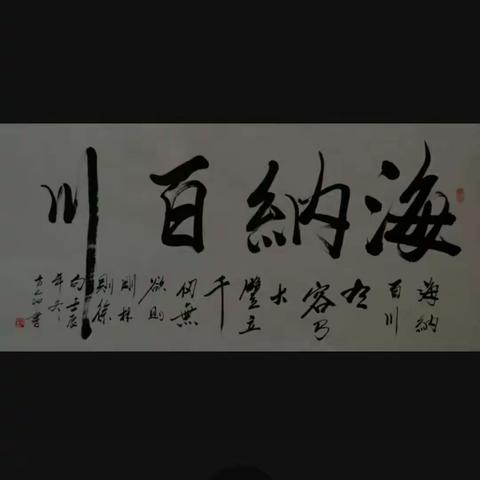 海納百川
海納
百川
有
容乃
大
壁立
千
仞無
欲則
剛林
則徐
句壬辰
年冬
書